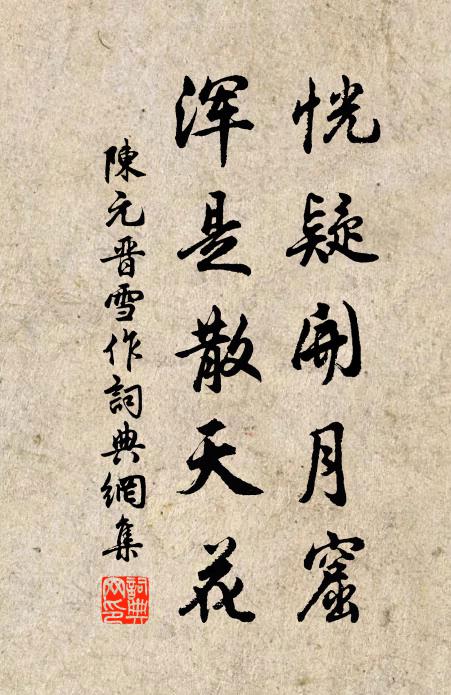 恍疑開月窟
渾是散天花
陳元晋雪作詞典網集
詞典网印